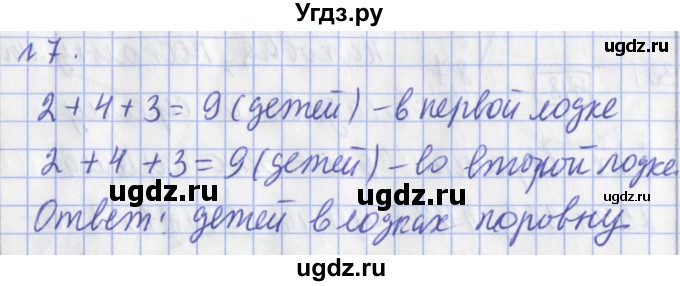 Угдз.ру
№ 7.
ugdz.ru
ugdz.ru
2 + 4 + 3 = 9 (детей) – в первой лодке
ugdz.ru
2 + 4 + 3 = 9 (детей) – во второй лодке.
ugdz.ru
ugdz.ru
Ответ: детей в лодках поровну
ugdz.ru